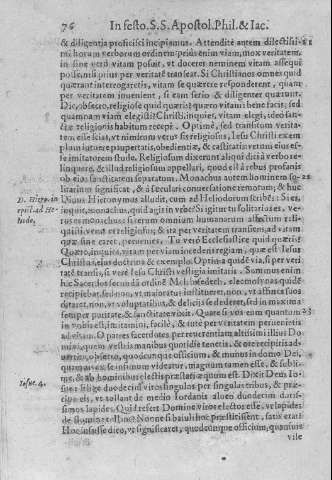 76 In festo. S. S. Apostol. Phil. & Iac.
& diligentia proficisci incipiamus. Attendite autem dilectissi- 21
mi horum verborum ordinem: prius enim viam, mox veritatem,
in fine vero vitam posuit, vt doceret neminem vitam assequi
posse, nisi prius per veritatē transeat. Si Christianos omnes quid
quærant interrogaretis, vitam se quærere responderent, quam
per veritatem inuenient, si eam serio & diligenter quærunt.
Dic, obsecro, religiose quid quæris? quæro vitam: bene facis; sed
quamnam viam elegisti? Christi, inquies, vitam elegi, ideo san-
ctæ religionis habitum recepi. Optimè, sed transitum verita-
tem esse scias, vt nimirum verus sis religiosus, Iesu Christi exem
plum intuere paupertatis, obedientiæ, & castitatis verum eius es-
se imitatorem stude. Religiosum dixerunt aliqui dici à verbo re-
linquere, & illud religiosum appellari, quod est à rebus profanis
ob eius sanctitatem separatum. Monachus autem hominem so- 22
litarium significat, & à seculari conuersatione remotum; & huc
D. Hiero. in Diuus Hieronymus alludit, cum ad Heliodorum scribit: Si es,
epist. ad He- inquit, monachus, quid agis in vrbe? Si igitur tu solitarius es, ve-
liodo, rus es monachus: si autem omnium humanarum affectum reli-
quisti, verus es religiosus; & ita per veritatem transieris, ad vitam
quæ sine caret, peruenies. Tu verò Ecclesiastice quid quæris?
Quæro, inquis, vitam per viam incedens regiam, quæ est Iesus
Christus, eius doctrina & exemplo. Optima quidē via, si per veri
tatē transis, si verè Iesu Christi vestigia imitaris. Summus enim
hic Sacerdos secundū ordinē Melchisedech, eleemosynas quidē
recipiebat, sed non, vt maiores suas inflaret, non, vt affines suos
ditaret, non, vt voluptatibus, & delicijs se dederet, sed in maxima
semper puritate, & sanctitate vixit. Quare si vos eum quantum 23
in vobis est, imitamini, facilè, & tute per veritatem peruenietis
ad vitam. O patres sacerdotes per reuerentiam altissimi illius Do
mini, quem vestris manibus quotidie tenetis, & ore recipitis ad-
uertite, obsecro, quodcunque officium, & munus in domo Dei,
quamuis esse infimum videatur, magnum tamen esse, & subli-
me, & ab hominibus lectis præstari æquum est. Dixit Deus Io-
Iosue. 4. sue: Elige duodecim viros singulos per singulas tribus, & præ-
cipe eis, vt tollant de medio Iordanis alueo duodecim duris-
simos lapides. Quid refert Domine viros electos esse, vt lapides
de flumine tollant? Nonne si baiuli hoc præstitissent, satis erat?
Hoc iussisse dico, vt significaret, quodcumque officium, quamuis
vile